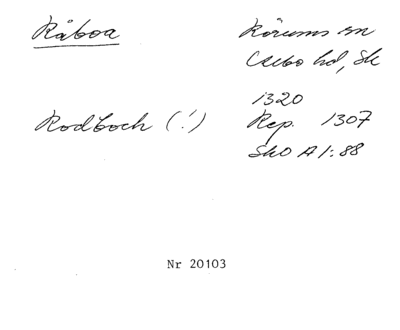 Råboa
Rörums sn
Albo hd, Sk
1320
Rodboch (!)
Rep. 1307
SkO A 1:88
Nr 20103